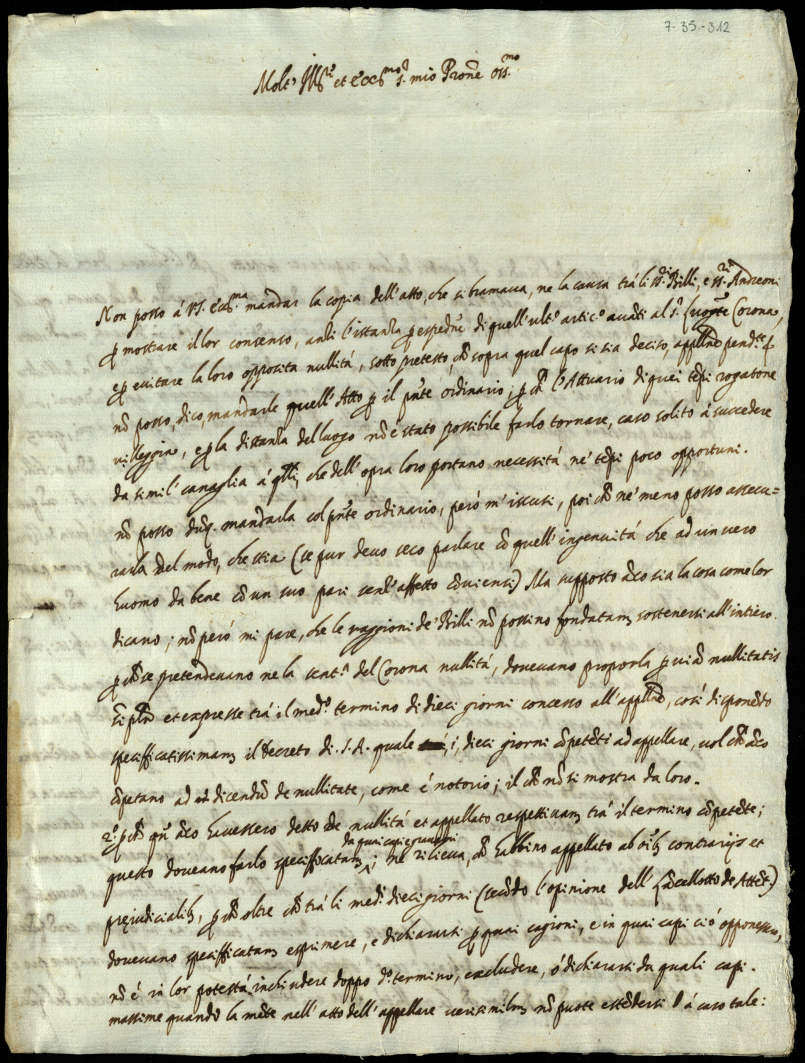 7-35-312
Molt' Ill.re et ecc.mo S. mio Prone oss.mo
Non posso á VS. ecc.ma mandar la copia dell'atto, che si bramava, ne la causa trà li SS.ri Brilli, e SS.ri Andreoni
ꝑ mostrare il lor consenso, anzi l'istanza ꝑ espedne di quell'ult.o artic.o avãti al S. Corona,
e ꝑ evitare la loro opposita nullitá, sotto pretesto, ch̃ sopra quel capo si sia deciso, applne pend.te
nõ posso, dico, mandarle quell'Atto ꝑ il pñte ordinario; ꝑ ch̃ l'Attuario di quei tẽpi rogatone
villeggia, e ꝑ la distanza del luogo nõ é stato possibile farlo tornare, caso solito á succedere
da simil' canaglia á qlli, che dell'opra loro portano necessitá ne' tẽpi poco opportuni.
nõ posso dunq. mandarla col pñte ordinario, peró m'iscusi, poi ch̃ ne' meno posso assecu=
rarla del modo, che stia (se pur devo seco parlare cõ quell'ingenuitá che ad un vero
huomo da bene cõ un suo pari senz'affetto cõviensi) Ma supposto ãco sia la cosa come lor
dicano; nõ peró mi pare, che le raggioni de' Brilli nõ possino fondatam. sostenersi all'intiero.
ꝑ ch̃ se pretendevano ne la sent.a del Corona nullitá, dovevano proporla ꝑ viã nullitatis
et expresse trá il med.o termino di dieci giorni concesso all'applne, cosí disponẽdo
speciffticatissimam. il Decreto di S. A. quale, i, dieci giorni cõpetẽti ad appellare, vol ch̃ ãco
cõpetano ad dicendũ de nullitate, come é notorio; il ch̃ nõ si mostra da loro.
2.o ꝑ ch̃ qñ ãco havessero detto de nullitá et appellato respettivam. trá il termino cõpetẽte;
da quai capi e gravami
questo doveano farlo speciffocatam. ; ne rilieva, ch̃ habbino appellato ab oĩb contrarijs et
prejudicialib, ꝑ ch̃ oltre ch̃ trá li med.i dieci giorni (secõdo l'opinione dell' Lãcellotto de Attẽt.)
dovevano speciffticatam. esprimere, e dichiararsi ꝑ quai cagioni, e in quai capi ció opponessero,
nõ é in lor potestá, inchiudere doppo d.o termino, escludere, ó dichiararsi da quali capi.
massime quando la mẽte nell'atto dell'appellare verisimilm. nõ puote estẽdersi á caso tale: